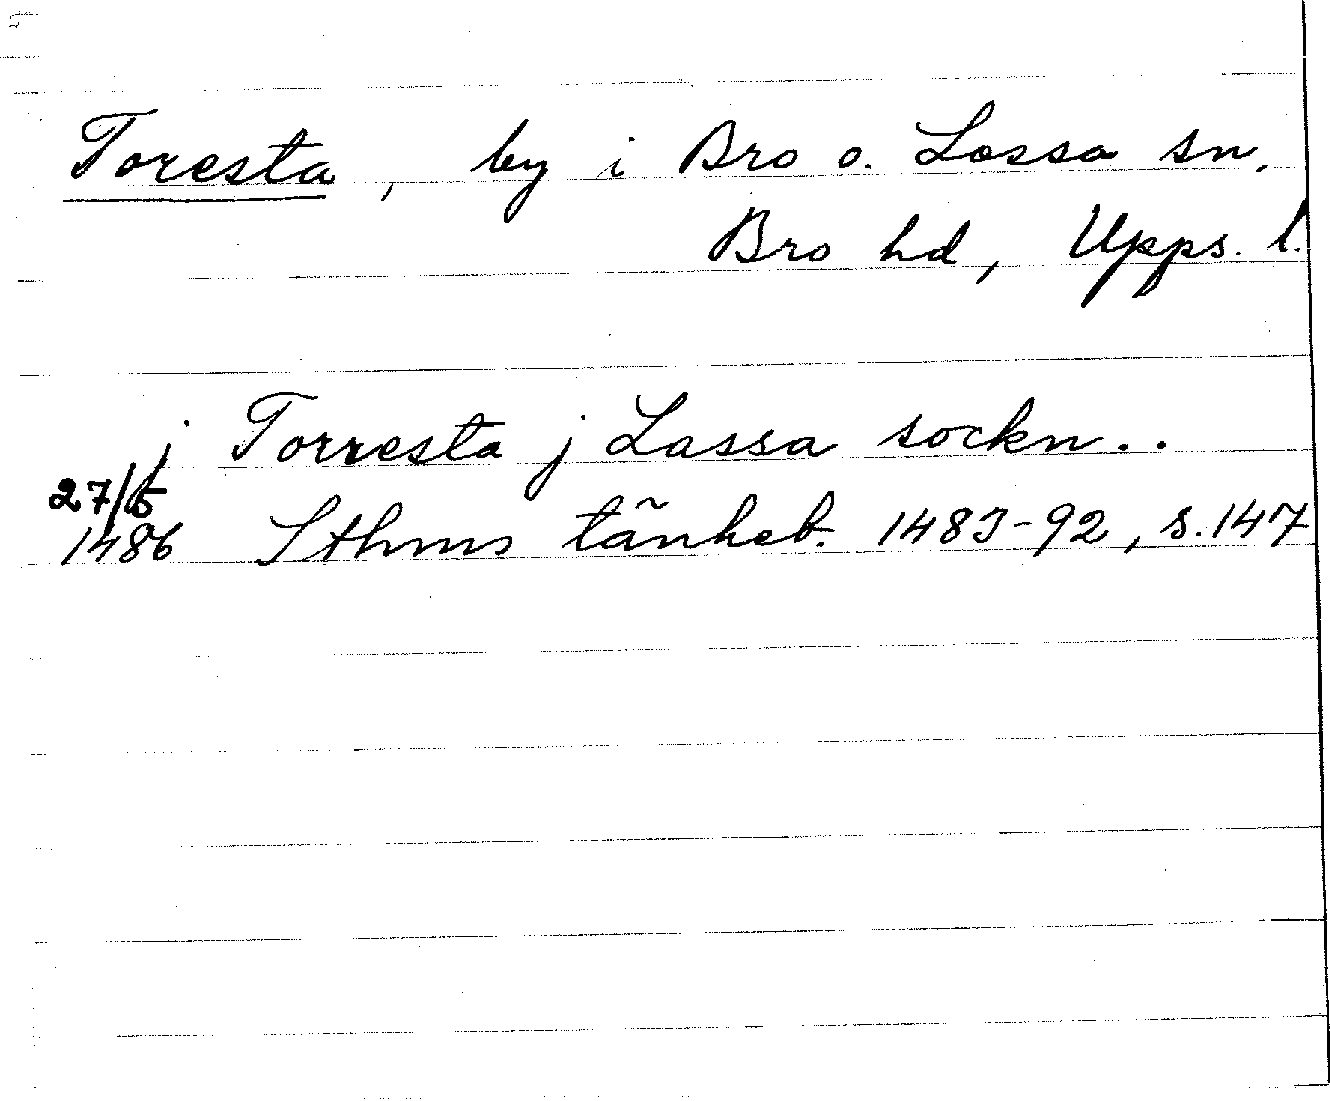 Toresta, by i Bro o. Lossa sn,
Bro hd, Upps. l.
j Torresta j Lassa sockn..
27/5
1486 Sthms tänkeb. 1483-92, s.147